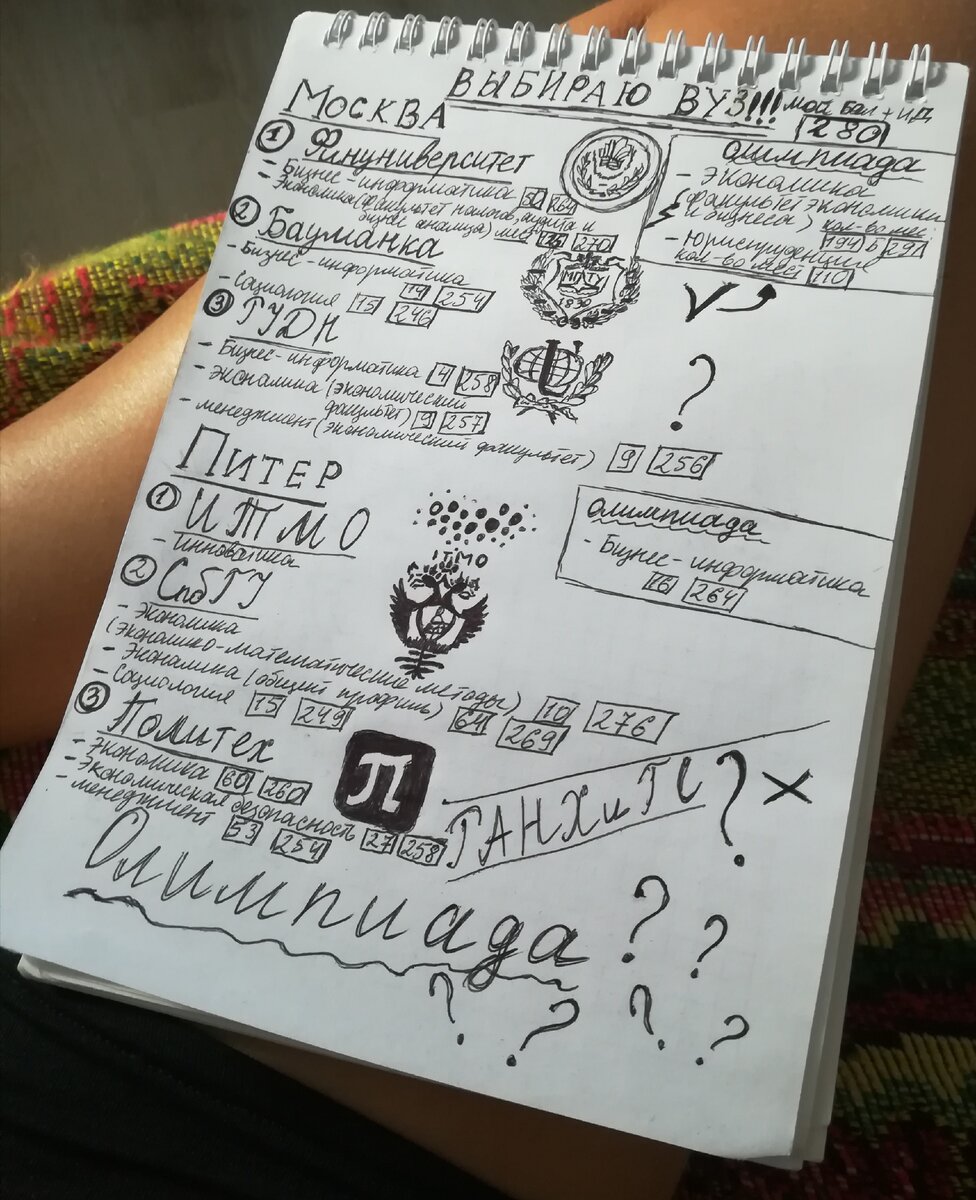 ВЫБИРАЮ ВУЗ!!!
мой бал + ИД
280
МОСКВА
1 Финуниверситет
- Бизнес-информатика 50
- Экономика (факультет налогов, аудита и
бизнес анализа) 270
2 Бауманка
- Бизнес-информатика
19 254
- Социология 15 246
МГТУ
1830
3 РУДН
- Бизнес-информатика 4 258
- Экономика (экономический
факультет) 9 257
- менеджмент (экономический факультет) 9 256
олимпиада
- Экономика
(факультет экономики
и бизнеса) кол-во мест
194 Б 291
- Юриспруденция
кол-во мест 110
?
ПИТЕР
1 ИТМО
- Инноватика
ITMO
олимпиада
- Бизнес-информатика
16 264
2 СпбГУ
- Экономика
(Экономико-математические методы) 10 276
- Экономика (общий профиль) 64 269
- Социология 15 249
3 Политех
- Экономика 60 260
- Экономическая безопасность 27 258
- менеджмент 53 254
П
РАНХиГС ? X
Олимпиада ? ?
? ? ? ?